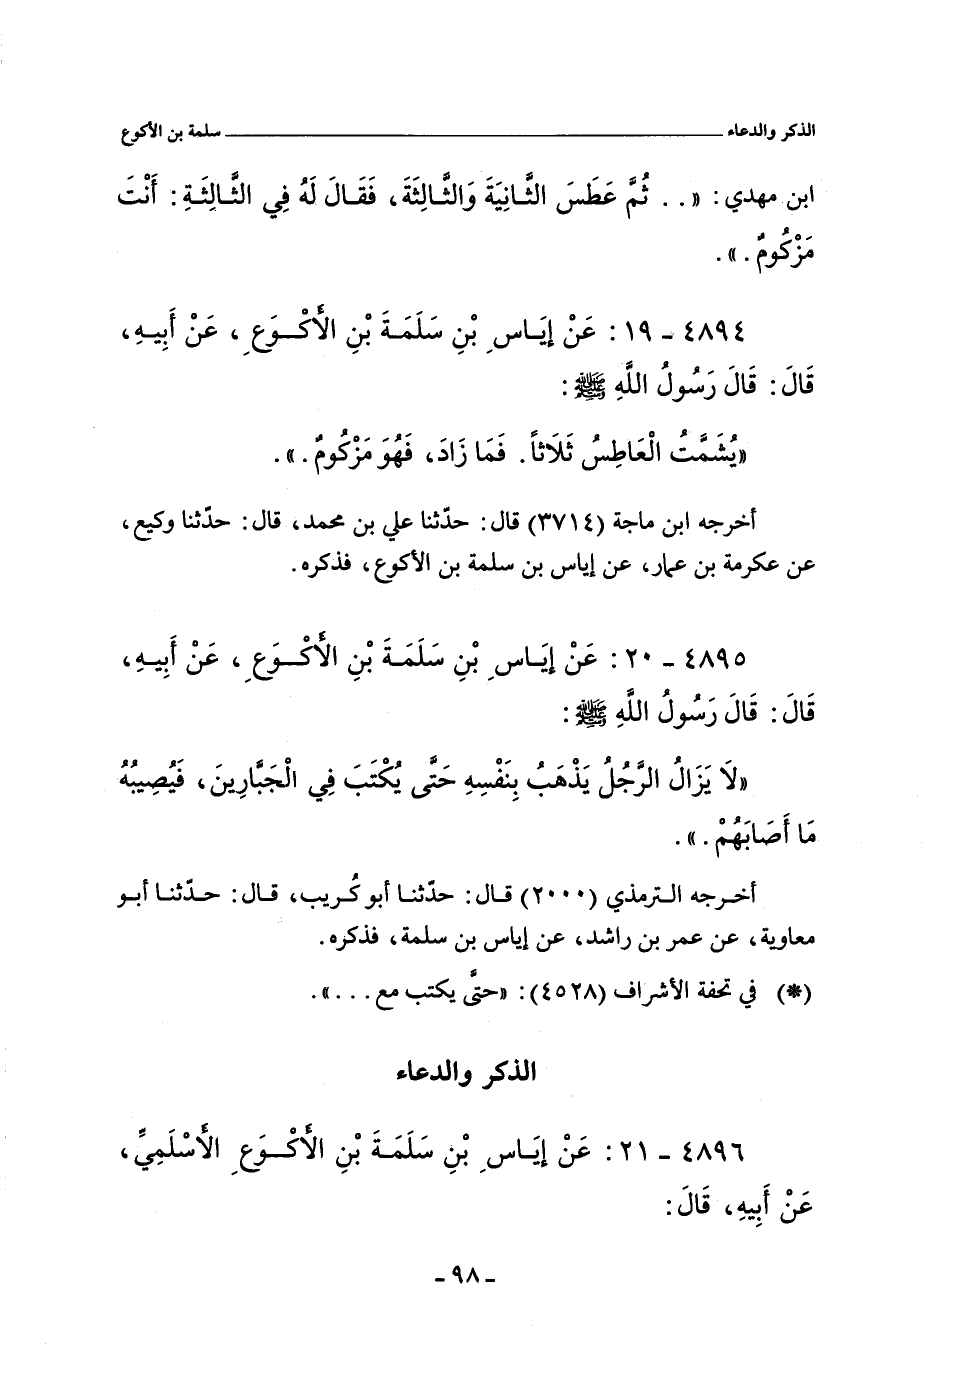 الذكر والدعاء ــــــــــ سلمة بن الأكوع
ابن مهدي: «. . ثُمَّ عَطَسَ الثَّانِيَةَ وَالثَّالِثَةَ، فَقَالَ لَهُ فِي الثَّالِثَةِ: أَنْتَ
مَزْكُومٌ.».
٤٨٩٤ ـ ١٩: عَنْ إِيَاسِ بْنِ سَلَمَةَ بْنِ الأَكْوَعِ، عَنْ أَبِيهِ،
قَالَ: قَالَ رَسُولُ اللَّهِ ﷺ:
«يُشَمَّتُ الْعَاطِسُ ثَلَاثاً. فَمَا زَادَ، فَهُوَ مَزْكُومٌ.».
أخرجه ابن ماجة (٣٧١٤) قال: حدّثنا علي بن محمد، قال: حدّثنا وكيع،
عن عكرمة بن عمار، عن إياس بن سلمة بن الأكوع، فذكره.
٤٨٩٥ ـ ٢٠: عَنْ إِيَاسِ بْنِ سَلَمَةَ بْنِ الأَكْوَعِ، عَنْ أَبِيهِ،
قَالَ: قَالَ رَسُولُ اللَّهِ ﷺ:
«لَا يَزَالُ الرَّجُلُ يَذْهَبُ بِنَفْسِهِ حَتَّى يُكْتَبَ فِي الْجَبَّارِينَ، فَيُصِيبُهُ
مَا أَصَابَهُمْ.».
أخرجه الترمذي (٢٠٠٠) قال: حدّثنا أبو كُريب، قال: حدّثنا أبو
معاوية، عن عمر بن راشد، عن إياس بن سلمة، فذكره.
(*) في تحفة الأشراف (٤٥٢٨): «حتَّى يكتب مع . . .».
الذكر والدعاء
٤٨٩٦ ـ ٢١: عَنْ إِيَاسِ بْنِ سَلَمَةَ بْنِ الأَكْوَعِ الأَسْلَمِيِّ،
عَنْ أَبِيهِ، قَالَ:
ـ ٩٨ ـ